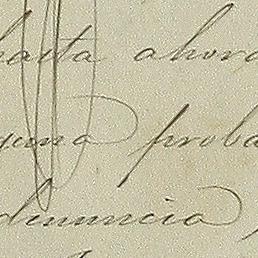 hasta ahora
guna proba
denuncia